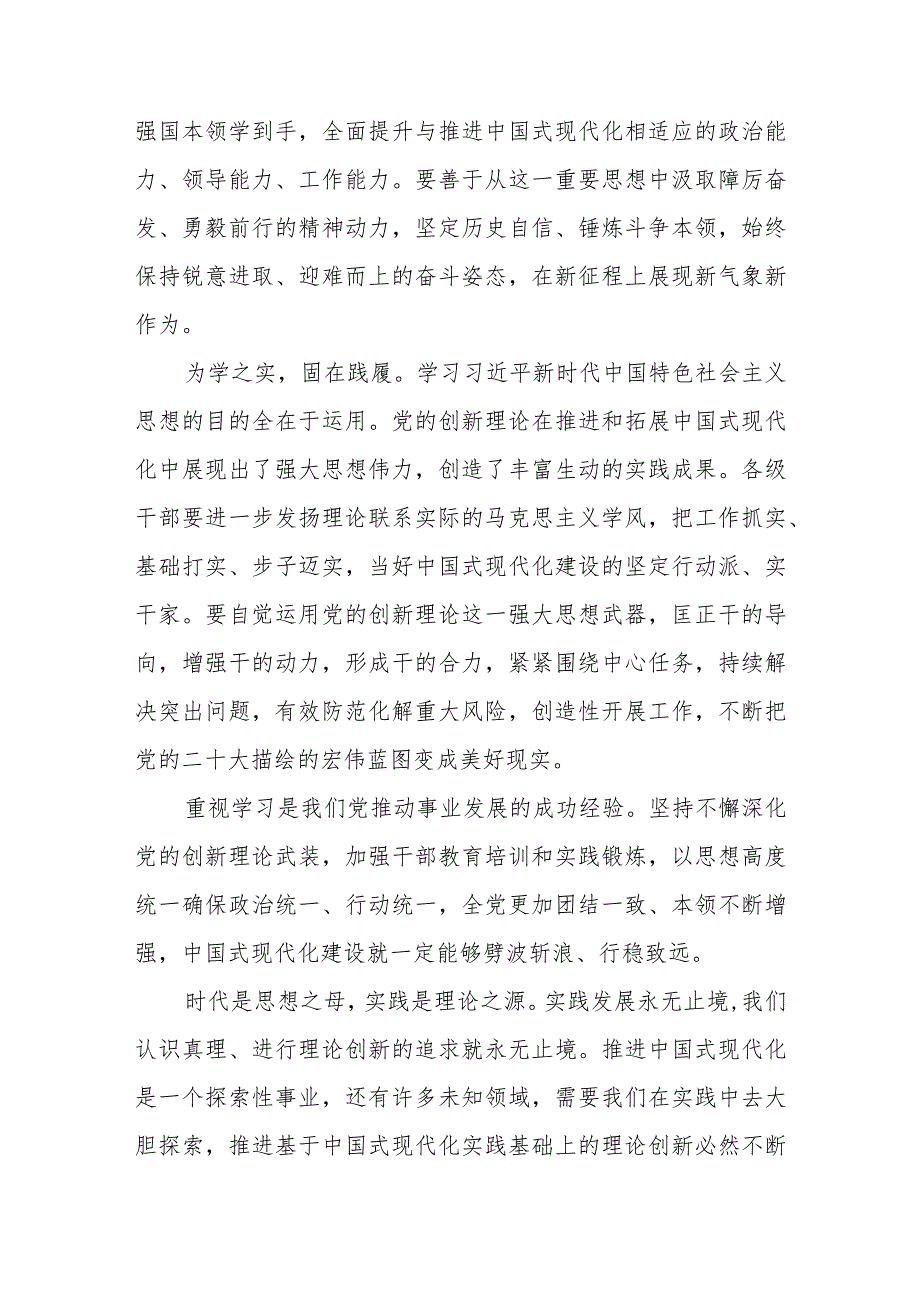 强国本领学到手，全面提升与推进中国式现代化相适应的政治能
力、领导能力、工作能力。要善于从这一重要思想中汲取障厉奋
发、勇毅前行的精神动力，坚定历史自信、锤炼斗争本领，始终
保持锐意进取、迎难而上的奋斗姿态，在新征程上展现新气象新
作为。
为学之实，固在践履。学习习近平新时代中国特色社会主义
思想的目的全在于运用。党的创新理论在推进和拓展中国式现代
化中展现出了强大思想伟力，创造了丰富生动的实践成果。各级
干部要进一步发扬理论联系实际的马克思主义学风，把工作抓实、
基础打实、步子迈实，当好中国式现代化建设的坚定行动派、实
干家。要自觉运用党的创新理论这一强大思想武器，匡正干的导
向，增强干的动力，形成干的合力，紧紧围绕中心任务，持续解
决突出问题，有效防范化解重大风险，创造性开展工作，不断把
党的二十大描绘的宏伟蓝图变成美好现实。
重视学习是我们党推动事业发展的成功经验。坚持不懈深化
党的创新理论武装，加强干部教育培训和实践锻炼，以思想高度
统一确保政治统一、行动统一，全党更加团结一致、本领不断增
强，中国式现代化建设就一定能够劈波斩浪、行稳致远。
时代是思想之母，实践是理论之源。实践发展永无止境,我们
认识真理、进行理论创新的追求就永无止境。推进中国式现代化
是一个探索性事业，还有许多未知领域，需要我们在实践中去大
胆探索，推进基于中国式现代化实践基础上的理论创新必然不断